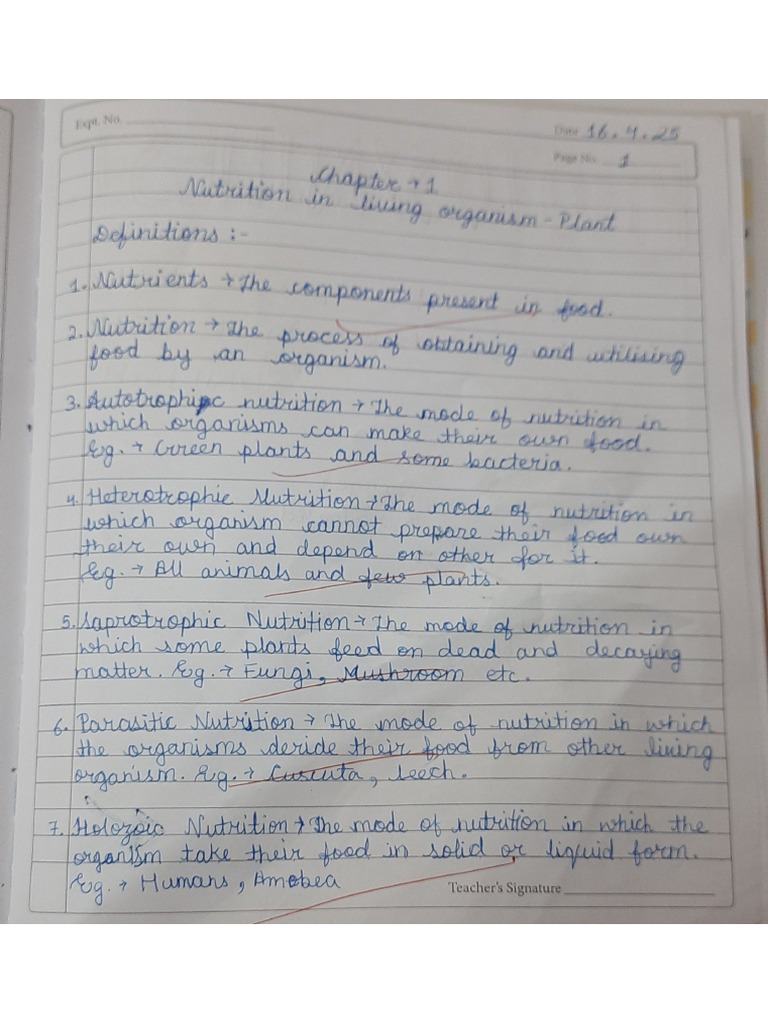 Expt. No.
Date 16.4.25
Page No. 1
Chapter → 1
Nutrition in living organism - Plant
Definitions :-
1. Nutrients → The components present in food.
2. Nutrition → The process of obtaining and utilising
food by an organism.
3. Autotrophic nutrition → The mode of nutrition in
which organisms can make their own food.
Eg. → Green plants and some bacteria.
4. Heterotrophic Nutrition → The mode of nutrition in
which organism cannot prepare their food own
their own and depend on other for it.
Eg. → All animals and few plants.
5. Saprotrophic Nutrition → The mode of nutrition in
which some plants feed on dead and decaying
matter. Eg. → Fungi, Mushroom etc.
6. Parasitic Nutrition → The mode of nutrition in which
the organisms deride their food from other living
organism. Eg. → Cuscuta, Leech.
7. Holozoic Nutrition → The mode of nutrition in which the
organism take their food in solid or liquid form.
Eg. → Humans, Amobea
Teacher's Signature